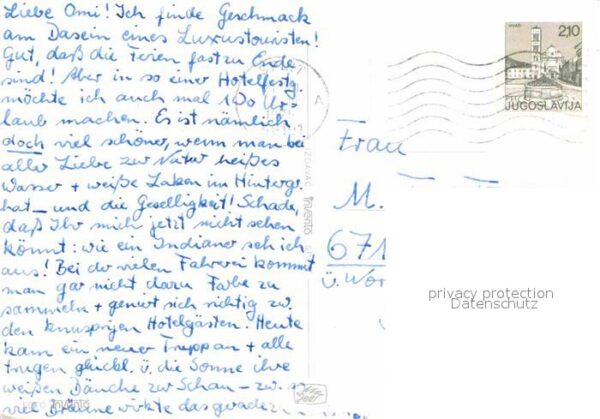 Liebe Omi! Ich finde Geschmack
am Dasein eines Luxustouristen!
Gut, daß die Ferien fast zu Ende
sind! Aber in so einer Hotelfestg.
möchte ich auch mal Ur-
laub machen. Es ist nämlich
doch viel schöner, wenn man bei
aller Liebe zur Natur heißes
Wasser + weiße Laken im Hintergr.
hat – und die Geselligkeit! Schade,
daß Ihr mich jetzt nicht sehen
könnt: wie ein Indianer seh ich
aus! Bei der vielen Fahrerei kommt
man gar nicht dazu Farbe zu
sammeln + geniert sich richtig zw.
den knusprigen Hotelgästen. Heute
kam ein neuer Trupp an + alle
trugen glückl. ü. die Sonne ihre
weißen Bäuche zur Schau – zw. so
viel Bräune wirkte das geradezu
2,10
HVAR
PTT
JUGOSLAVIJA
Frau
M.
671
ü. Wor
IZDAVAČ
privacy protection
Datenschutz